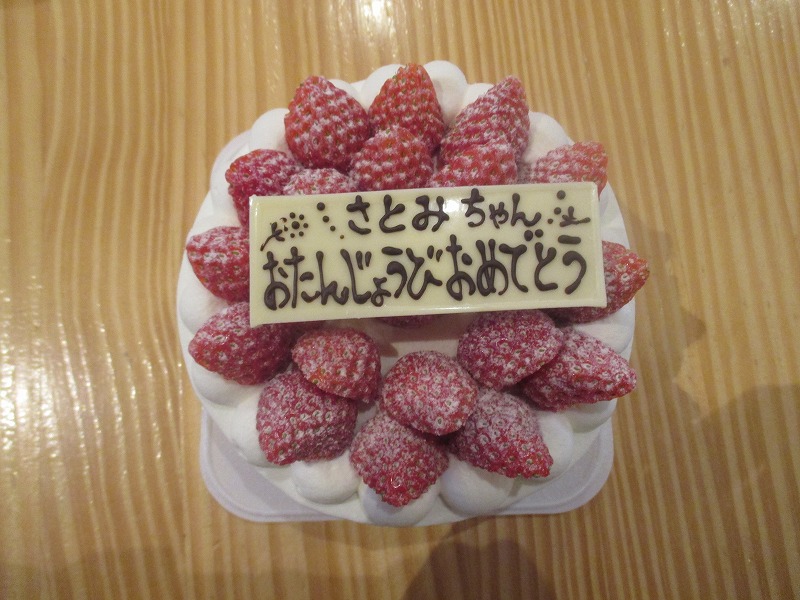 さとみちゃん
おたんじょうびおめでとう